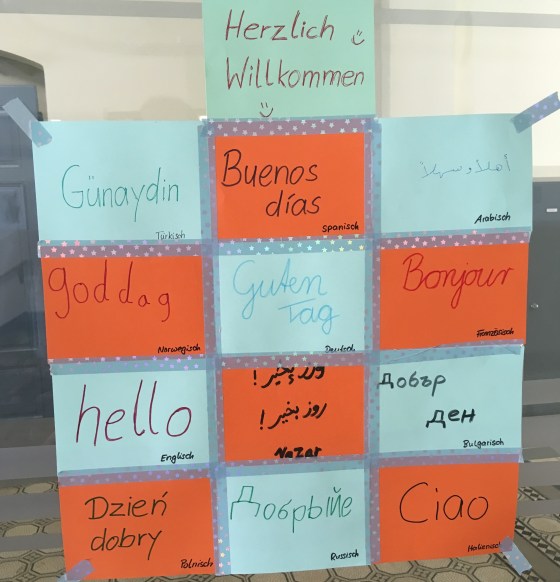 Herzlich
Willkommen
Günaydin
Türkisch
Buenos
días
Spanisch
أهلاً وسهلاً
Arabisch
god dag
Norwegisch
Guten
Tag
Deutsch
Bonjour
Französisch
hello
Englisch
روز بخیر!
Nazar
Добър
ден
Bulgarisch
Dzień
dobry
Polnisch
Добрыйе
Russisch
Ciao
Italienisch